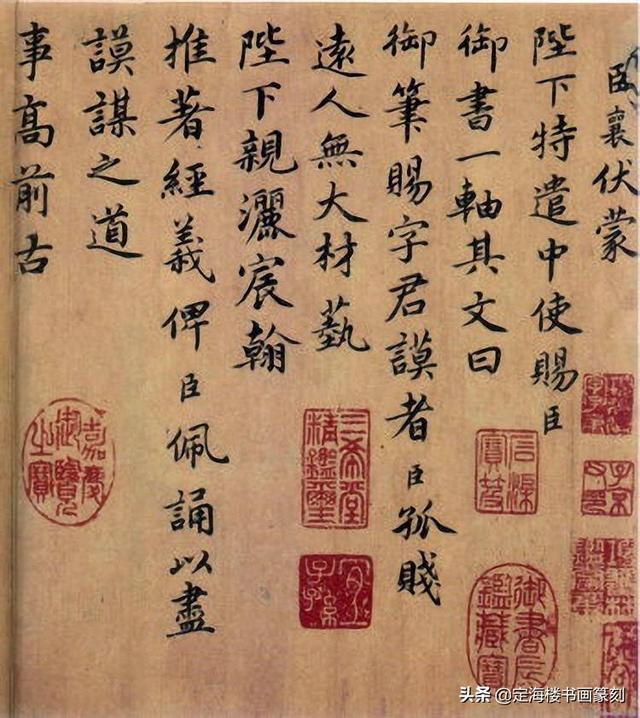 臣襄伏蒙
陛下特遣中使賜臣
御書一軸其文曰
御筆賜字君謨者臣孤賤
遠人無大材藝
陛下親灑宸翰
推著經義俾臣佩誦以盡
謨謀之道
事高前古
嘉慶御覽之寶
三希堂精鑑璽
宜子孫
頭条 @定海楼书画篆刻